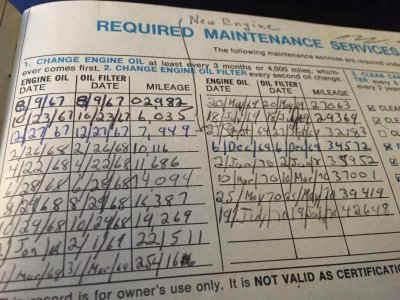 New Engine
REQUIRED MAINTENANCE SERVICES
The following maintenance services are required
1. CHANGE ENGINE OIL at least every 3 months or 4,000 miles, which-
ever comes first. 2. CHANGE ENGINE OIL FILTER every second oil change.
ENGINE OIL DATE OIL FILTER DATE MILEAGE
8/9/67 8/9/67 02982
10/23/67 10/23/67 6,035
12/27/67 7,949
2/26/68 2/26/68 10116
4/22/68 4/22/68 11686
6/28/68 6/28/68 14094
8/29/68 8/29/68 16387
10/29/68 10/29/68 19269
2/1/69 22511
31/Mar/69
ENGINE OIL DATE OIL FILTER DATE MILEAGE
20/May/69 20/May/69 27063
18/July/69 29364
23/Sept/69 32183
6/Dec/69 6/Dec/69 34572
2/Jan/70
10/Mar/70 10/Mar/70 37001
25/May/70 25/May/70 39419
19/July/70 42648
3. CLEAN
every 2
CLE
record is for owner's use only. It is NOT VALID AS CERTIFICATI